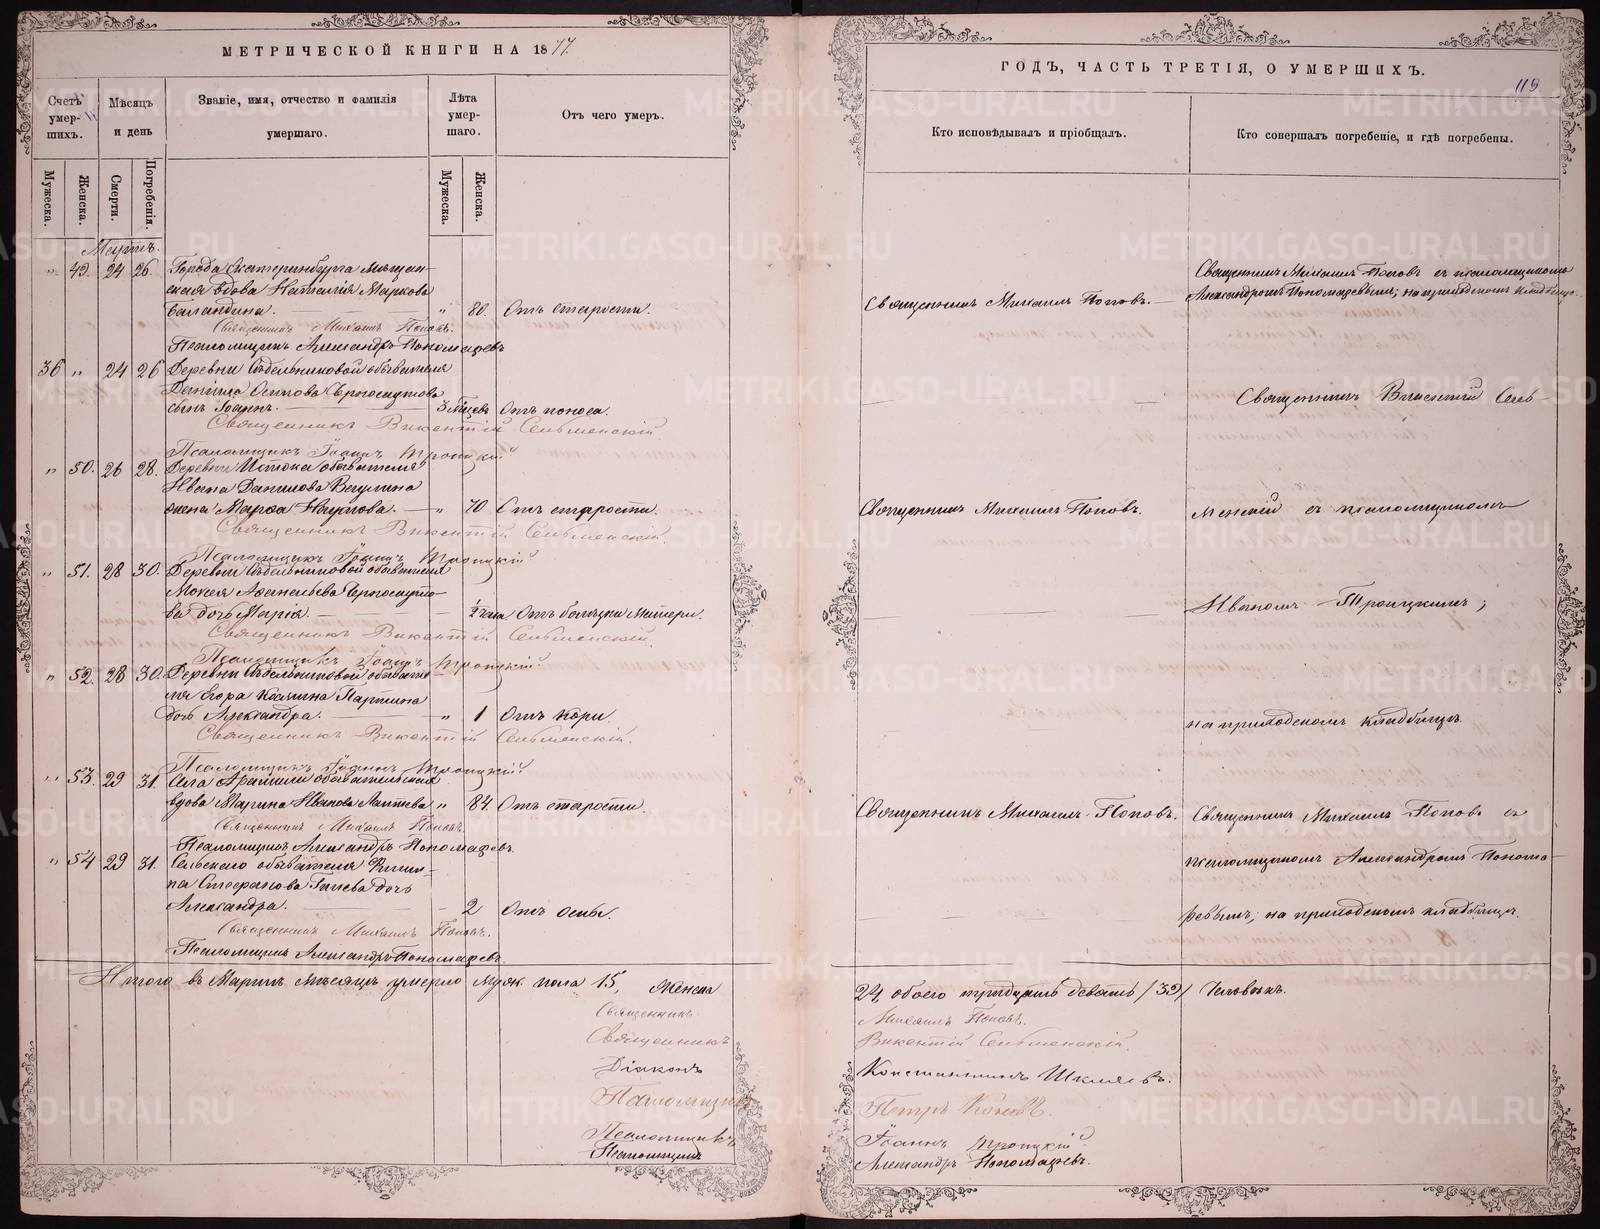 МЕТРИЧЕСКОЙ КНИГИ НА 1877.
Счетъ умер-шихъ.
Мѣсяцъ и день
Званіе, имя, отчество и фамилія умершаго.
Лѣта умер-шаго.
Отъ чего умеръ.
Мужеска.
Женска.
Смерти.
Погребенія.
Мужеска.
Женска.
Мартъ.
" 49. 24 26. Города Екатеринбурга мѣщан-
ская вдова Наталія Маркова
Баландина. " 80. Отъ старости.
Священникъ Михаилъ Поповъ.
Псаломщикъ Александръ Пономаревъ
36 " 24 26 Деревни Сѣдельниковой обывателя
Осипова
сынъ Іоаннъ. 3 мѣсяцевъ Отъ поноса.
Священникъ Викентій Сельменскій.
Псаломщикъ Іоаннъ Троицкій
" 50. 26 28. Деревни Истока обывателя
Ивана Данилова
жена Марѳа Наумова. " 70 Отъ старости.
Священникъ Викентій Сельменскій.
Псаломщикъ Іоаннъ Троицкій
" 51. 28 30. Деревни Сѣдельниковой обывателя
Мокея Аѳанасьева
ва дочь Марія. Отъ болѣзни матери.
Священникъ Викентій Сельменскій.
Псаломщикъ Іоаннъ Троицкій
" 52. 28 30. Деревни Сѣдельниковой обывате-
ля Егора Космина Паршина
дочь Александра. " 1 Отъ кори.
Священникъ Викентій Сельменскій.
Псаломщикъ Іоаннъ Троицкій
" 53. 29 31. Села Арамили обывательская
вдова Марина Иванова Лаптева " 84. Отъ старости.
Священникъ Михаилъ Поповъ.
Псаломщикъ Александръ Пономаревъ.
" 54 29 31. Сельскаго обывателя Филип-
па Стефанова Гилева дочь
Александра. 2 Отъ оспы.
Священникъ Михаилъ Поповъ.
Псаломщикъ Александръ Пономаревъ
Итого въ Мартѣ мѣсяцѣ умерло муж. пола 15, женска
Священникъ
Священникъ
Діаконъ
Псаломщикъ
Псаломщикъ
Псаломщикъ
ГОДЪ, ЧАСТЬ ТРЕТІЯ, О УМЕРШИХЪ.
Кто исповѣдывалъ и пріобщалъ.
Кто совершалъ погребеніе, и гдѣ погребены.
Священникъ Михаилъ Поповъ.
Священникъ Михаилъ Поповъ съ псаломщикомъ
Александромъ Пономаревымъ; на приходскомъ кладбищѣ.
Священникъ Викентій Сель-
Священникъ Михаилъ Поповъ.
менскій съ псаломщикомъ
Иваномъ Троицкимъ;
на приходскомъ кладбищѣ.
Священникъ Михаилъ Поповъ. Священникъ Михаилъ Поповъ съ
псаломщикомъ Александромъ Понома-
ревымъ; на приходскомъ кладбищѣ.
24, обоего тридцать девять /39/ человѣкъ.
Михаилъ Поповъ.
Викентій Сельменскій.
Константинъ Шкляевъ.
Петръ
Іоаннъ Троицкій
Александръ Пономаревъ.
METRIKI.GASO-URAL.RU